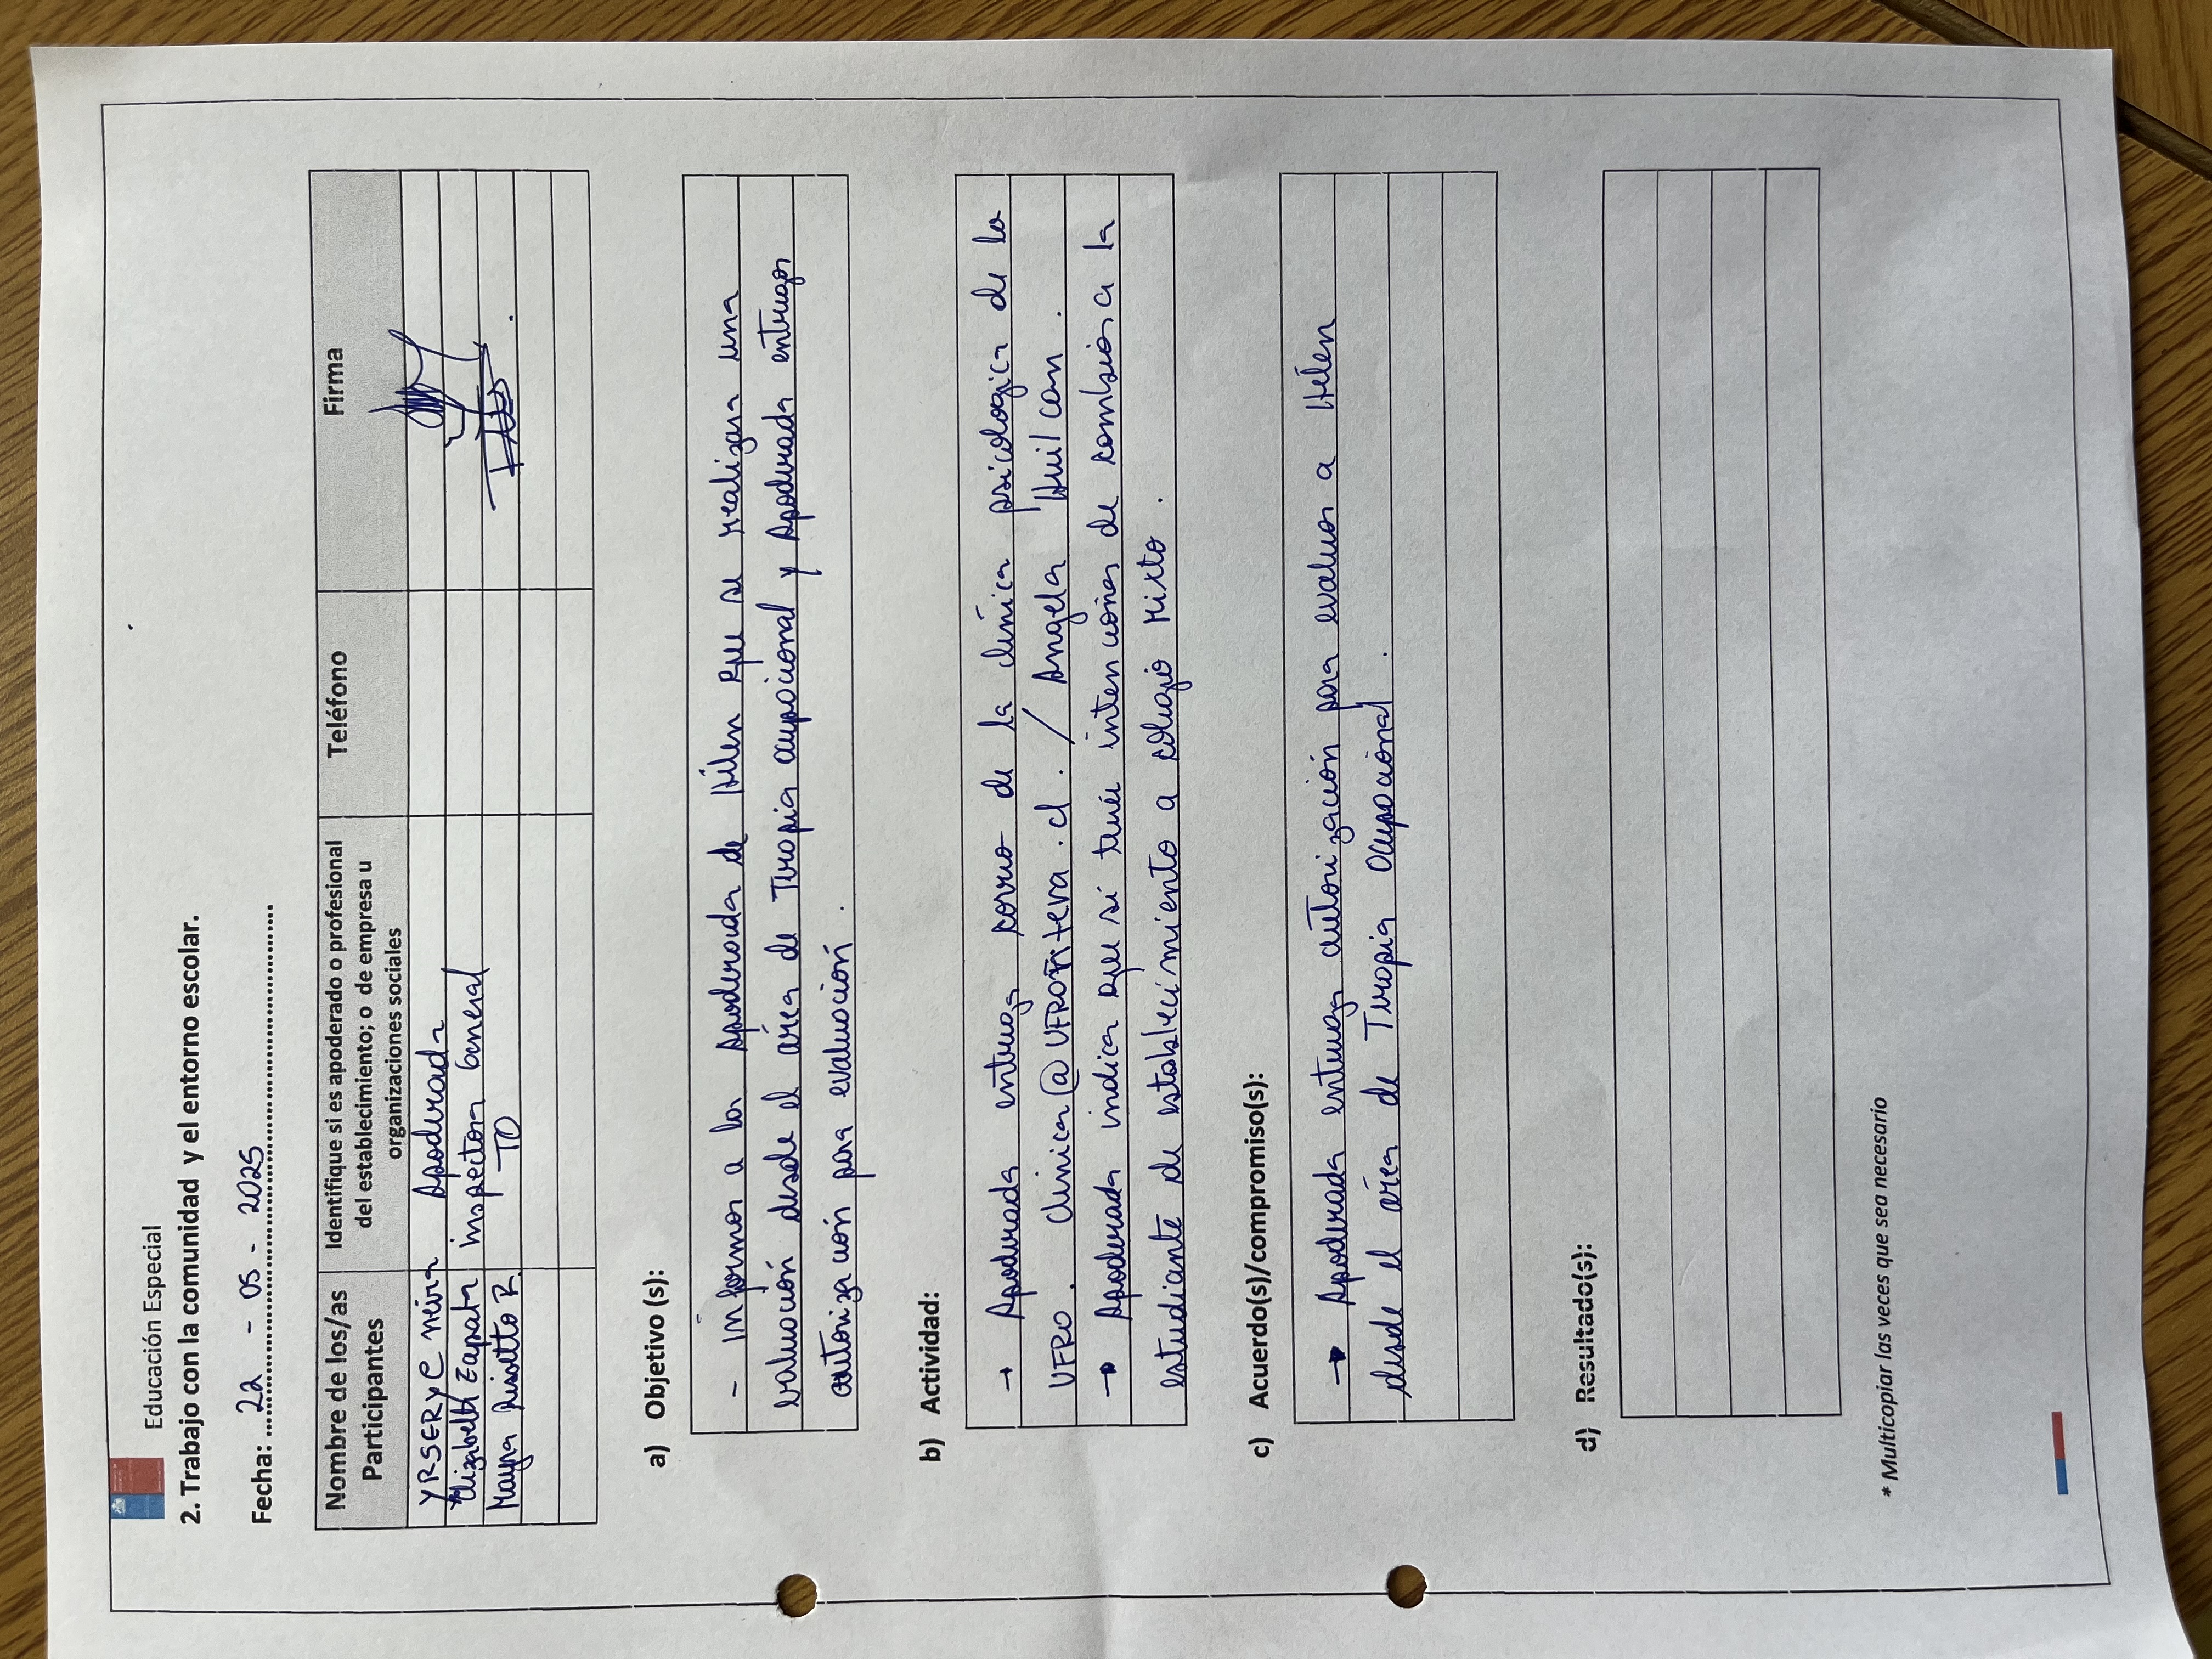 Educación Especial
2. Trabajo con la comunidad y el entorno escolar.
Fecha: 22 - 05 - 2025
Nombre de los/as Participantes
Identifique si es apoderado o profesional del establecimiento; o de empresa u organizaciones sociales
Teléfono
Firma
YRSERYC neira apoderada
Elizabeth Zapata inspectora General
Mayra R. TO
a) Objetivo (s):
- informar a la apoderada de Hílen que se realizara una
evaluación desde el área de Terapia ocupacional y Apoderada entrega
autorización para evaluación.
b) Actividad:
→ Apoderada entrega correo de la clínica psicologica de la
UFRO. clinica@UFROntera.cl. / Angela Huilcan.
→ Apoderada indica que si tenie intenciones de cambiar a la
estudiante de establecimiento a colegio Mixto.
c) Acuerdo(s)/compromiso(s):
→ Apoderada entrega autorización para evaluar a Hílen
desde el área de Terapia Ocupacional.
d) Resultado(s):
* Multicopiar las veces que sea necesario